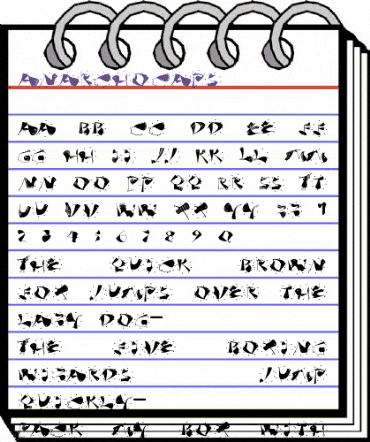 ANARCHOCAPS
AA BB CC DD EE FF
GG HH II JJ KK LL MM
NN OO PP QQ RR SS TT
UU VV WW XX YY ZZ 1
2 3 4 5 6 7 8 9 0
THE QUICK BROWN
FOX JUMPS OVER THE
LAZY DOG—
THE FIVE BOXING
WIZARDS JUMP
QUICKLY—
PACK MY BOX WITH